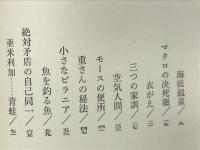 海底温泉／
マクロの決死圏／
衣がえ／
三つの家訓／
空気人間／
モースの便所／
重さんの秘法／
小さなピラニア／
魚を釣る魚／
絶対矛盾の自己同一／
亜米利加………青蛙／